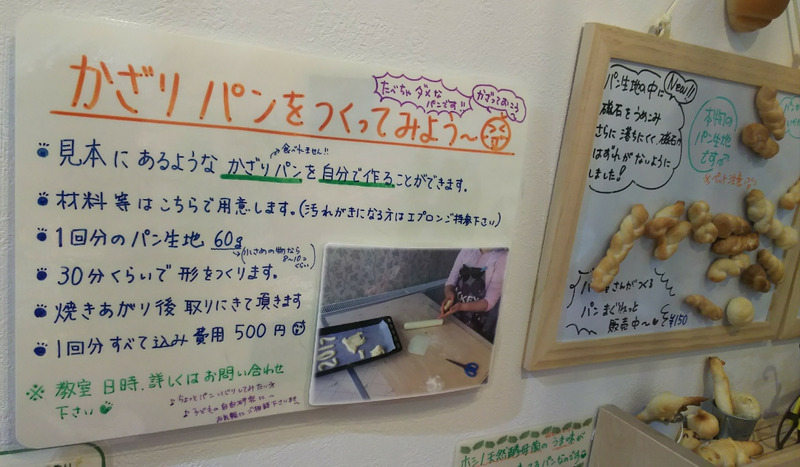 たべちゃダメな
パンです!!
かざっておこう
かざりパンをつくってみよう〜
食べれません!!
見本にあるような かざりパンを自分で作ることができます。
材料等はこちらで用意します。(汚れがきになる方はエプロンご持参下さい)
1回分のパン生地 60g
小さめの物なら
8〜10コ
くらい
30分くらいで形をつくります。
焼きあがり後 取りにきて頂きます
1回分すべて込み 費用 500円
※ 教室 日時、詳しくはお問い合わせ
下さい
♪ちょっとパンいじりしてみたい
♪子どもの自由研究に〜
お気軽にご相談下さいませ
2017
New!!
パン生地の中に
磁石をうめこみ
さらに落ちにくく、磁石が
はずれがないように
しました!
本物の
パン生地
ですよ
さんがつくる
パンまぐねっと
販売中〜 ¥150
ホシノ天然酵母菌のうま味が